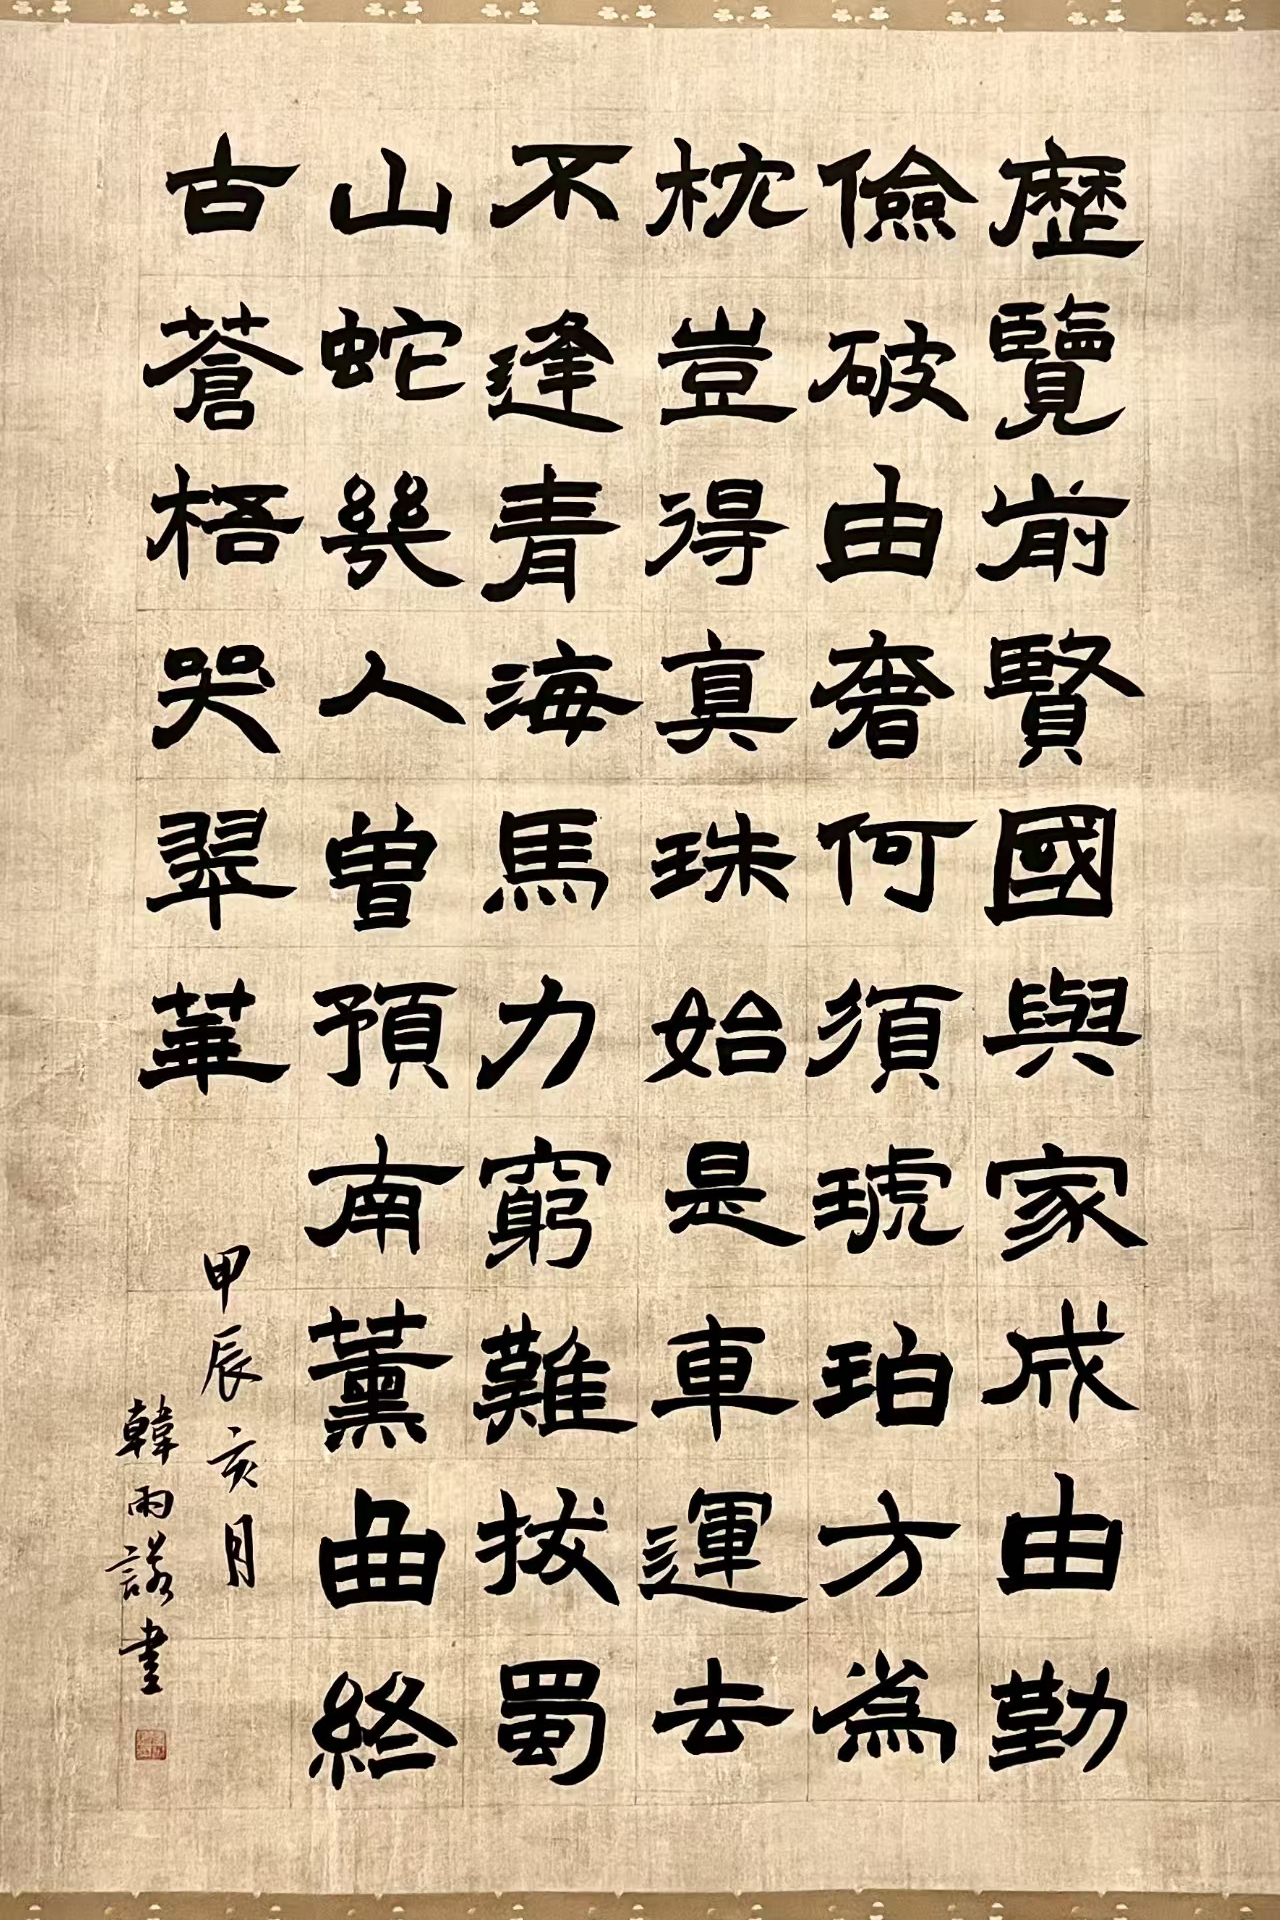 歷覽前賢國與家成由勤
儉破由奢何須琥珀方為
枕豈得真珠始是車運去
不逢青海馬力窮難拔蜀
山蛇幾人曾預南薰曲終
古蒼梧哭翠華
甲辰亥月
韓雨諾書